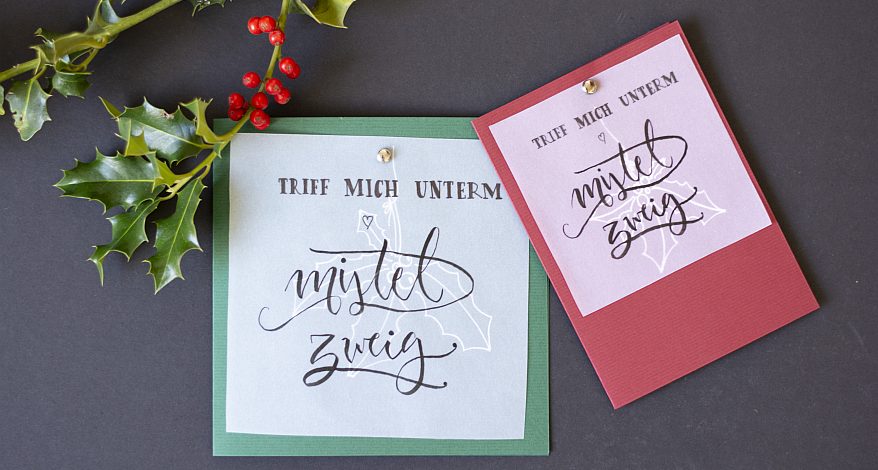 TRIFF MICH UNTERM
mistel
zweig
TRIFF MICH UNTERM
mistel
zweig